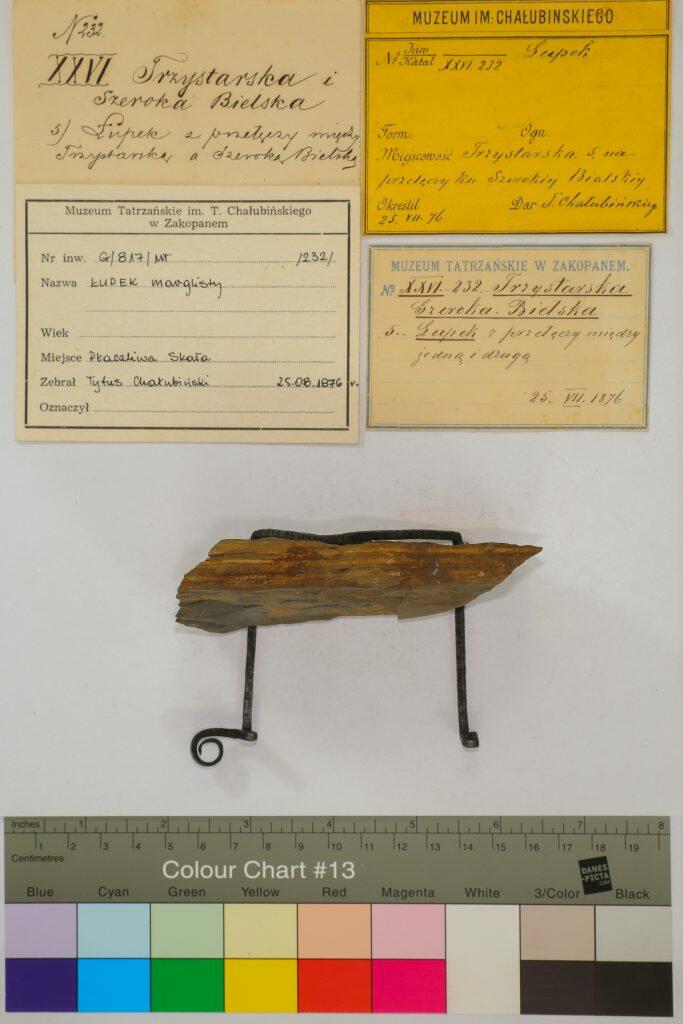 N 232.
XXVI Trzystarska i
Szeroka Bielska
5) Łupek z przełęczy między
Trzystarską a Szeroką Bielską
MUZEUM IM: CHAŁUBIŃSKIEGO
№ Inw Katal XXVI. 232 Łupek
Form. Ogn.
Miejscowość Trzystarska. 5, na
przełęczy ku Szerokiej Bialskiej
Określił Dar T. Chałubińskiego
25. VII. 76.
Muzeum Tatrzańskie im. T. Chałubińskiego
w Zakopanem
Nr inw. G/817/MT /232/
Nazwa ŁUPEK marglisty
Wiek
Miejsce Płaczliwa Skała
Zebrał Tytus Chałubiński 25.08.1876 r.
Oznaczył
MUZEUM TATRZAŃSKIE W ZAKOPANEM.
№ XXVI - 232. Trzystarska
Szeroka. Bielska.
5. - Łupek z przełęczy między
jedną i drugą
25. VII. 1876
Inches 1 2 3 4 5 6 7 8
Centimetres 1 2 3 4 5 6 7 8 9 10 11 12 13 14 15 16 17 18 19
Colour Chart #13
DANES
-PICTA
.COM
Blue Cyan Green Yellow Red Magenta White 3/Color Black